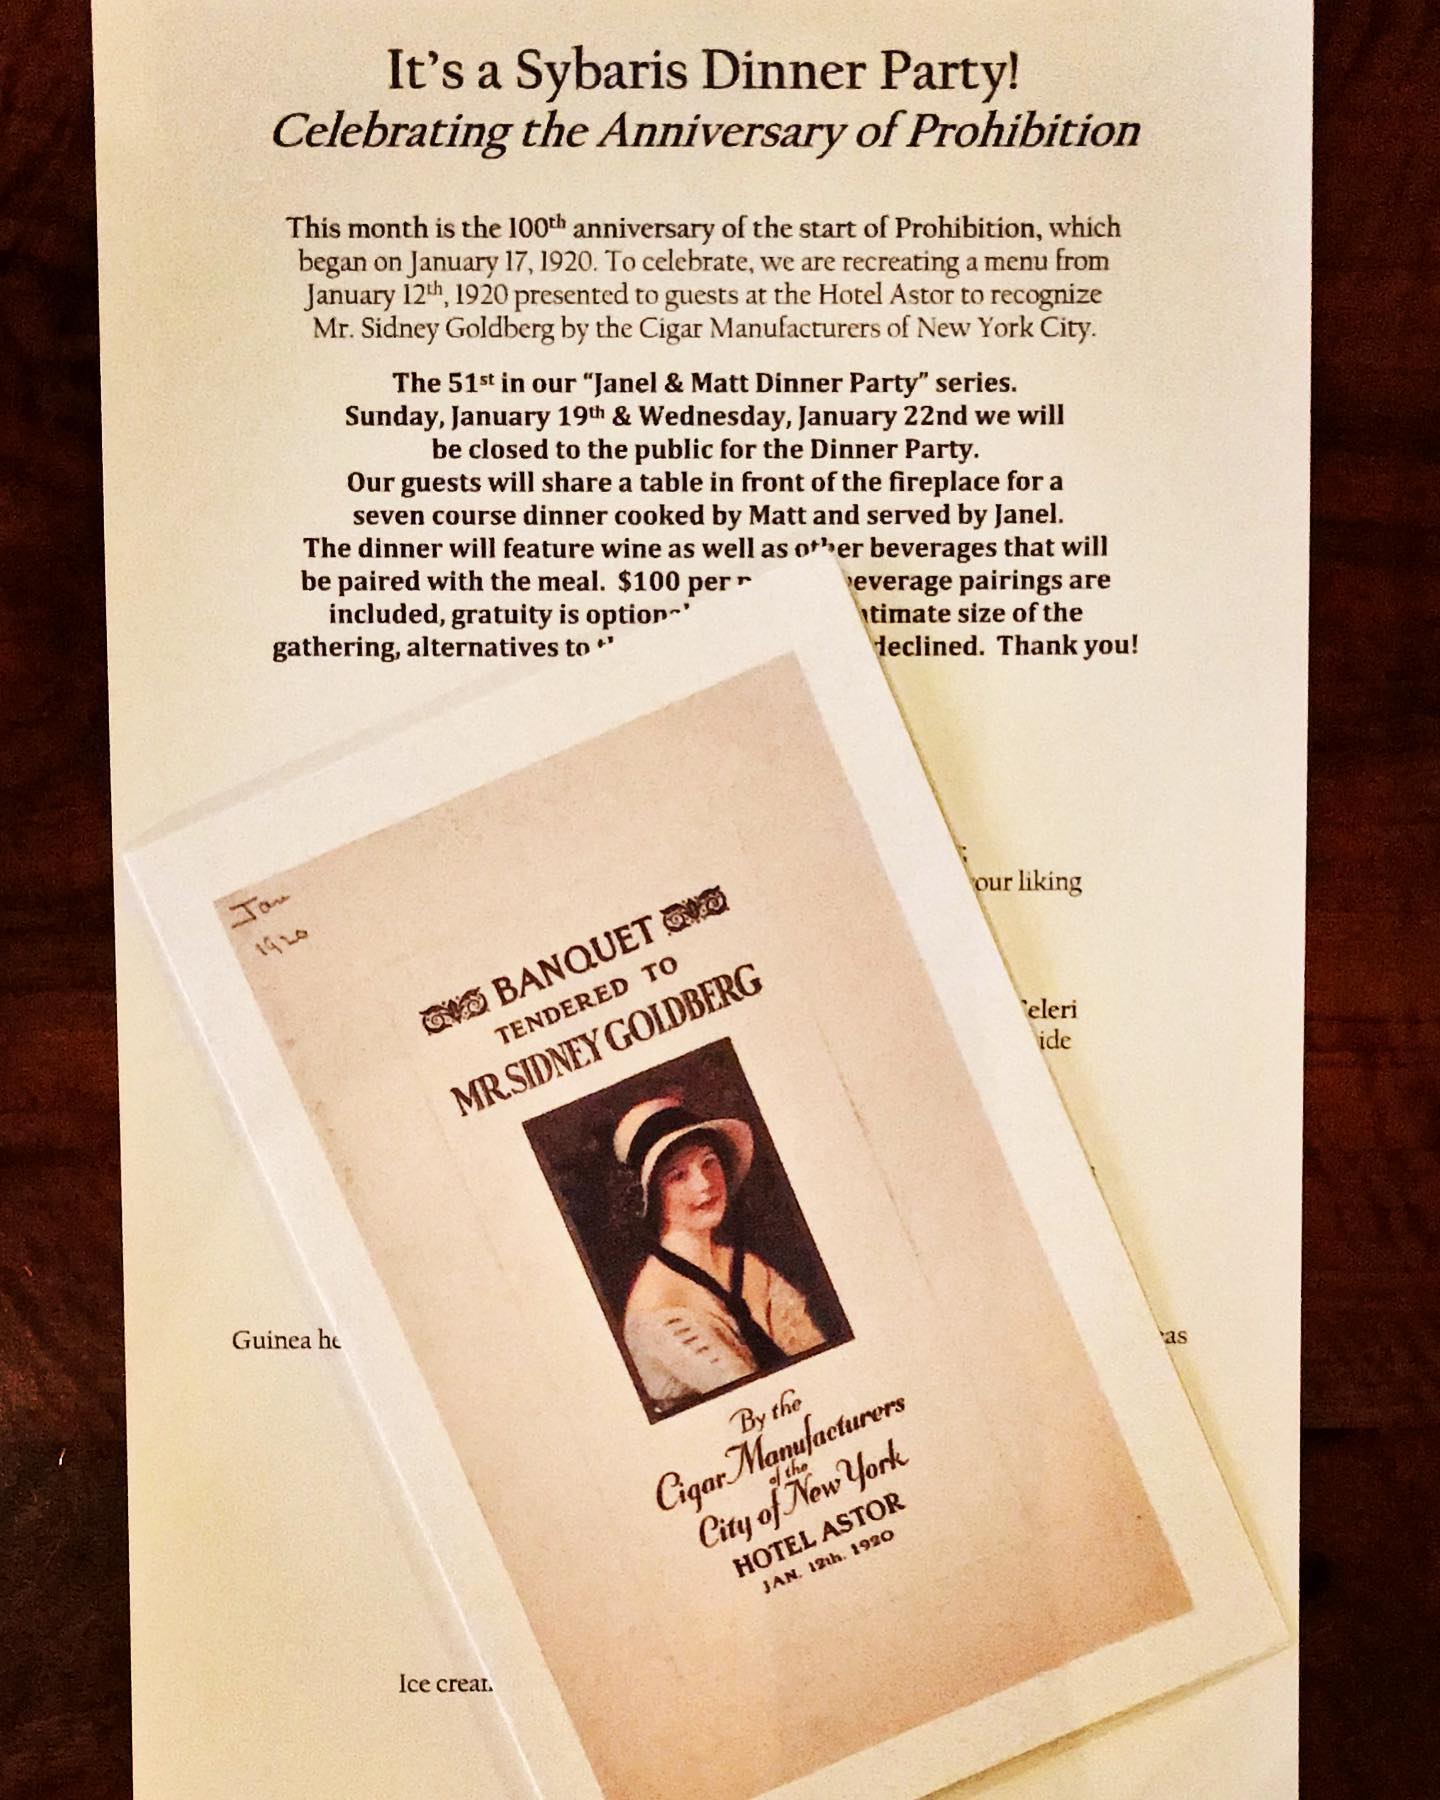 It's a Sybaris Dinner Party!
Celebrating the Anniversary of Prohibition
This month is the 100th anniversary of the start of Prohibition, which
began on January 17, 1920. To celebrate, we are recreating a menu from
January 12th, 1920 presented to guests at the Hotel Astor to recognize
Mr. Sidney Goldberg by the Cigar Manufacturers of New York City.
The 51st in our “Janel & Matt Dinner Party” series.
Sunday, January 19th & Wednesday, January 22nd we will
be closed to the public for the Dinner Party.
Our guests will share a table in front of the fireplace for a
seven course dinner cooked by Matt and served by Janel.
The dinner will feature wine as well as other beverages that will
be paired with the meal. $100 per everage pairings are
included, gratuity is optional timate size of the
gathering, alternatives to declined. Thank you!
our liking
eleri
ide
Guinea he
as
Ice cream
Jan
1920
BANQUET
TENDERED TO
MR. SIDNEY GOLDBERG
By the
Cigar Manufacturers
of the
City of New York
HOTEL ASTOR
JAN. 12th. 1920